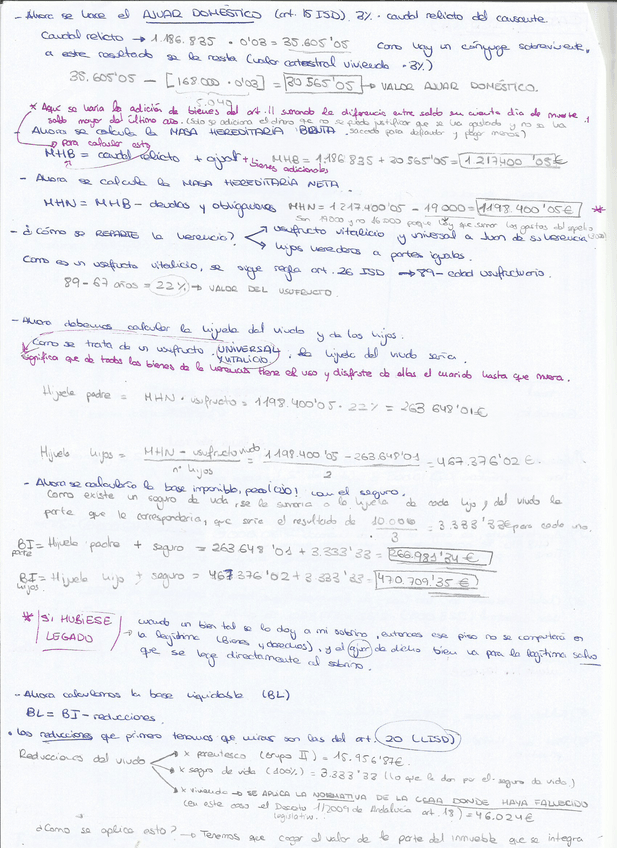 - Ahora se hace el AJUAR DOMÉSTICO (art. 15 ISD). 3% · caudal relicto del causante.
Caudal relicto → 1.186.835 · 0'03 = 35.605'05 Como hay un cónyuge sobreviviente,
a este resultado se le resta (valor catastral vivienda · 3%)
35.605'05 - [168.000 · 0'03] = 30.565'05 → VALOR AJUAR DOMÉSTICO.
5.040
* Aquí se haría la adición de bienes del art. 11 sumando la diferencia entre saldo en cuenta día de muerte y
saldo mayor del último año. (Solo se adiciona el dinero que no se pueda justificar que se ha gastado y no se ha
sacado para defraudar y pagar menos)
- Ahora se calcula la MASA HEREDITARIA BRUTA.
para calcular esto
MHB = caudal relicto + ajuar + bienes adicionales MHB = 1.186.835 + 30.565'05 = 1.217.400'05€
- Ahora se calcula la MASA HEREDITARIA NETA.
MHN = MHB - deudas y obligaciones MHN = 1.217.400'05 - 19.000 = 1.198.400'05€ *
Son 19.000 y no 16.000 porque hay que sumar los gastos del sepelio
- ¿Cómo se REPARTE la herencia? usufructo vitalicio y universal a Juan de su herencia
hijos herederos a partes iguales.
Como es un usufructo vitalicio, se sigue regla art. 26 ISD → 89 - edad usufructuario.
89 - 67 años = 22% → VALOR DEL USUFRUCTO.
- Ahora debemos calcular la hijuela del viudo y de los hijos.
* Como se trata de un usufructo UNIVERSAL Y VITALICIO, la hijuela del viudo sería.
significa que de todos los bienes de la herencia tiene el uso y disfrute de ellos el marido hasta que muera.
Hijuela padre = MHN · usufructo = 1198.400'05 · 22% = 263 648'01€
Hijuela hijos = MHN - usufructo viudo / nº hijos = 1198.400'05 - 263.648'01 / 2 = 467.376'02€.
- Ahora se calcularía la base imponible, pero ¡OJO! hay el seguro.
Como existe un seguro de vida, se le sumaría a la hijuela de cada hijo y del viudo la
parte que le correspondería, que sería el resultado de 10.000 / 3 = 3.333'33€ para cada uno.
BI padre = Hijuela padre + seguro = 263 648'01 + 3.333'33 = 266.981'34€
BI hijos = Hijuela hijo + seguro = 467 376'02 + 3 333'33 = 470.709'35€
* SI HUBIESE LEGADO cuando un bien tal se lo doy a mi sobrino, entonces ese piso no se computará en
la legítima (bienes y derechos), y el ajuar de dicho bien va para la legítima salvo
que se legue directamente al sobrino.
- Ahora calculamos la base liquidable (BL)
BL = BI - reducciones.
• Las reducciones que primero tenemos que mirar son las del art. 20 (LISD)
Reducciones del viudo
* parentesco (Grupo II) = 15.956'87€.
* seguro de vida (100%) = 3.333'33 (lo que le dan por el seguro de vida)
* vivienda → SE APLICA LA NORMATIVA DE LA CCAA DONDE HAYA FALLECIDO
(en este caso el Decreto 1/2009 de Andalucía art. 18) = 46.024€
legislativo
¿Cómo se aplica esto? → Tenemos que coger el valor de la parte del inmueble que se integra